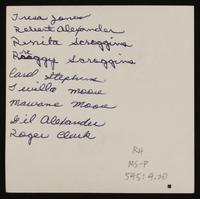 Tresa Jones
Robert Alexander
Renita Scroggins
Peggy Scroggins
Carol Stephens
Twilla Moore
Mawane Moore
Gil Alexander
Roger Clark
RH
MS-P
545:4.20